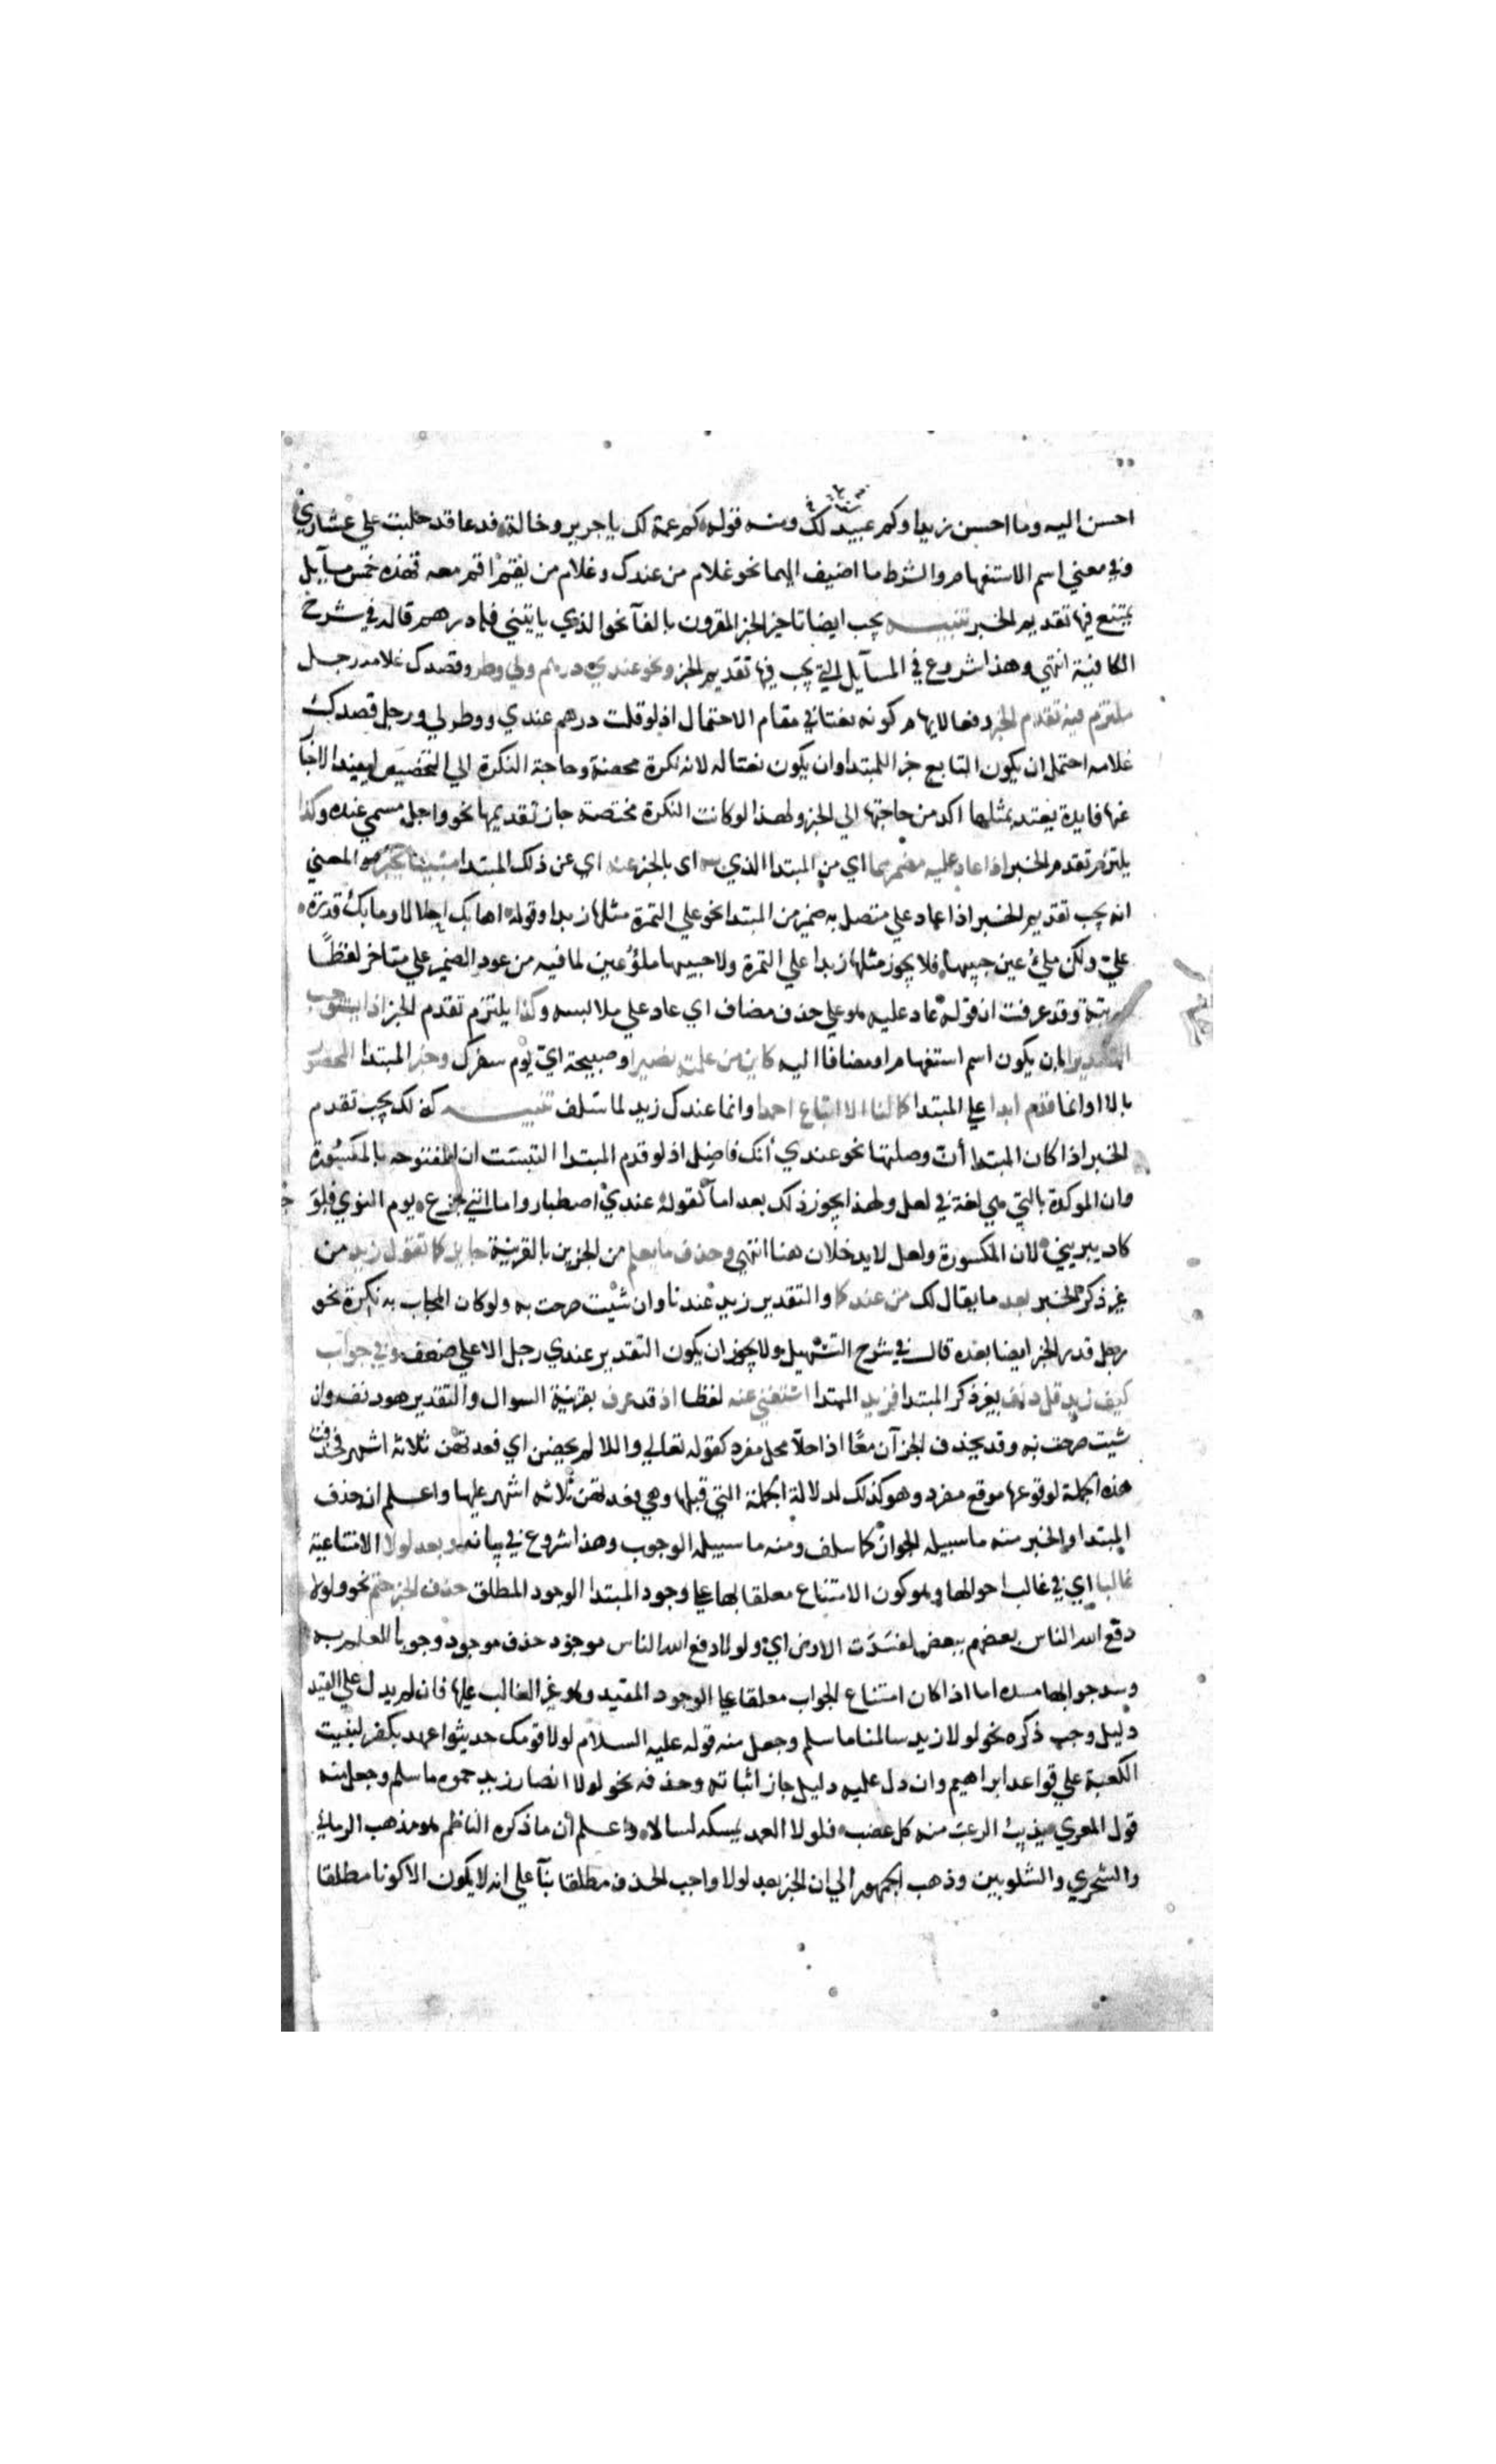 احسن اليه وما احسن زيدا وكم عبيد لك ومنه قوله كم عمة لك يا جرير وخالة فدعا قد حلبت علي عشاري
وفي معني اسم الاستفهام والشرط ما اضيف اليهما نحو غلام من عندك وغلام من يقم اقم معه فهذه خمس مسآيل
يمتنع فيها تقديم الخبر تنبيه يجب ايضا تاخير الخبر المقرون بالفآ نحو الذي ياتيني فله درهم قاله في شرح
الكافية انتهي وهذا شروع في المسآيل التي يجب فيها تقديم الخبر ونحو عندي درهم ولي وطر وقصدك غلامه رجل
ملتزم فيه تقدم الخبر دفعا لايهام كونه نعتا في مقام الاحتمال اذ لو قلت درهم عندي ووطر لي ورجل قصدك
غلامه احتمل ان يكون التابع خبرا للمبتدا وان يكون نعتا له لانه نكرة محضة وحاجة النكرة الي التخصيص ليفيد الاخبا
عنها فايدة يعتد بمثلها اكد من حاجتها الي الخبر ولهذا لو كانت النكرة مختصة جاز تقديمها نحو واجل مسمي عنده وكذا
يلتزم تقدم الخبر اذا عاد عليه مضمر مما اي من المبتدا الذي به اي بالخبر عنه اي عن ذلك المبتدا مبينا يخبر هو المعني
انه يجب تقديم الخبر اذا عاد علي متصل به ضمير من المبتدا نحو علي التمرة مثلها زبدا وقوله اهابك اجلالا وما بك قدرة
علي ولكن ملئ عين حبيبها فلا يجوز مثلها زبدا علي التمرة ولا حبيبها ملؤ عين لما فيه من عود الضمير علي متاخر لفظا
ورتبة وقد عرفت ان قوله عاد عليه هو علي حذف مضاف اي عاد علي ملابسه وكذا يلتزم تقدم الخبر اذا يستوجب
التصديرا بان يكون اسم استفهام او مضافا اليه كاين من علمته نصيرا وصبيحة اي يوم سفرك وخبر المبتدا المحصور
بالا او انما قدم ابدا علي المبتدا كما لنا الا اتباع احمدا وانما عندك زيد لما سلف تنبيه كذلك يجب تقدم
الخبر اذا كان المبتدا أن وصلتها نحو عندي انك فاضل اذ لو قدم المبتدا التبست ان المفتوحه بالمكسورة
وان الموكدة بالتي هي لغة في لعل ولهذا يجوز ذلك بعد اما كقوله عندي اصطبار واما انني جزع يوم النوي فلو
كاد يبريني لان المكسورة ولعل لا يدخلان هنا انتهي وحذف ما يعلم من الجزين بالقرينة جايز كما تقول زيد من
غير ذكر الخبر بعد ما يقال لك من عندكما والتقدير زيد عندنا وان شئت صرحت به ولو كان المجاب به نكرة نحو
رجل قدر الخبر ايضا بعده قال في شرح التسهيل ولا يجوز ان يكون التقدير عندي رجل الا علي ضعف وفي جواب
كيف زيد قل دنف بغير ذكر المبتدا فزيد المبتدا استغني عنه لفظا اذ قد عرف بقرينة السوال والتقدير هو دنف وان
شيت صرحت به وقد يحذف الجزآن معًا اذا حلا محل مفرد كقوله تعالي واللا لم يحضن اي فعدتهن ثلاثه اشهر فحذف
هذه الجملة لوقوعها موقع مفرد وهو كذلك لدلالة الجملة التي قبلها وهي فعدتهن ثلاثه اشهر عليها واعلم ان حذف
المبتدا والخبر منه ما سبيله الجواز كما سلف ومنه ما سبيله الوجوب وهذا شروع في بيانه وبعد لولا الامتناعية
غالبا اي في غالب احوالها وهو كون الامتناع معلقا بها علي وجود المبتدا الوجود المطلق حذف الخبر حتم نحو ولولا
دفع الله الناس بعضهم ببعض لفسدت الارض اي ولولا دفع الله الناس موجود حذف موجود وجوبا للعلم به
وسد جوابها مسده اما اذا كان امتناع الجواب معلقا علي الوجود المقيد وهو غير الغالب عليها فان لم يدل علي القيد
دليل وجب ذكره نحو لولا زيد سالمنا ما سلم وجعل منه قوله عليه السلام لولا قومك حديثوا عهد بكفر لبنيت
الكعبة علي قواعد ابراهيم وان دل عليه دليل جاز اثباته وحذفه نحو لولا انصار زيد حموه ما سلم وجعل منه
قول المعري يذيب الرعب منه كل عضب فلولا الغمد يمسكه لسالا واعلم أن ما ذكره الناظم هو مذهب الرماني
والشجري والشلوبين وذهب الجمهور الي ان الخبر بعد لولا واجب الحذف مطلقا بنآ علي انه لا يكون الا كونا مطلقا